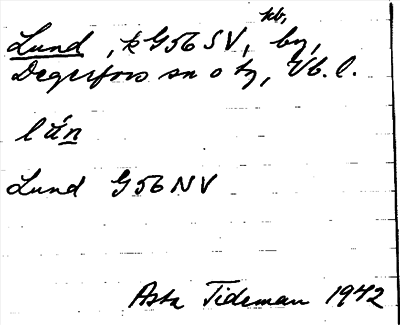 Lund, k G56 SV, kb, by,
Degerfors sn o tg, Vb. l.
lán
Lund G56 NV
Asta Tideman 1942